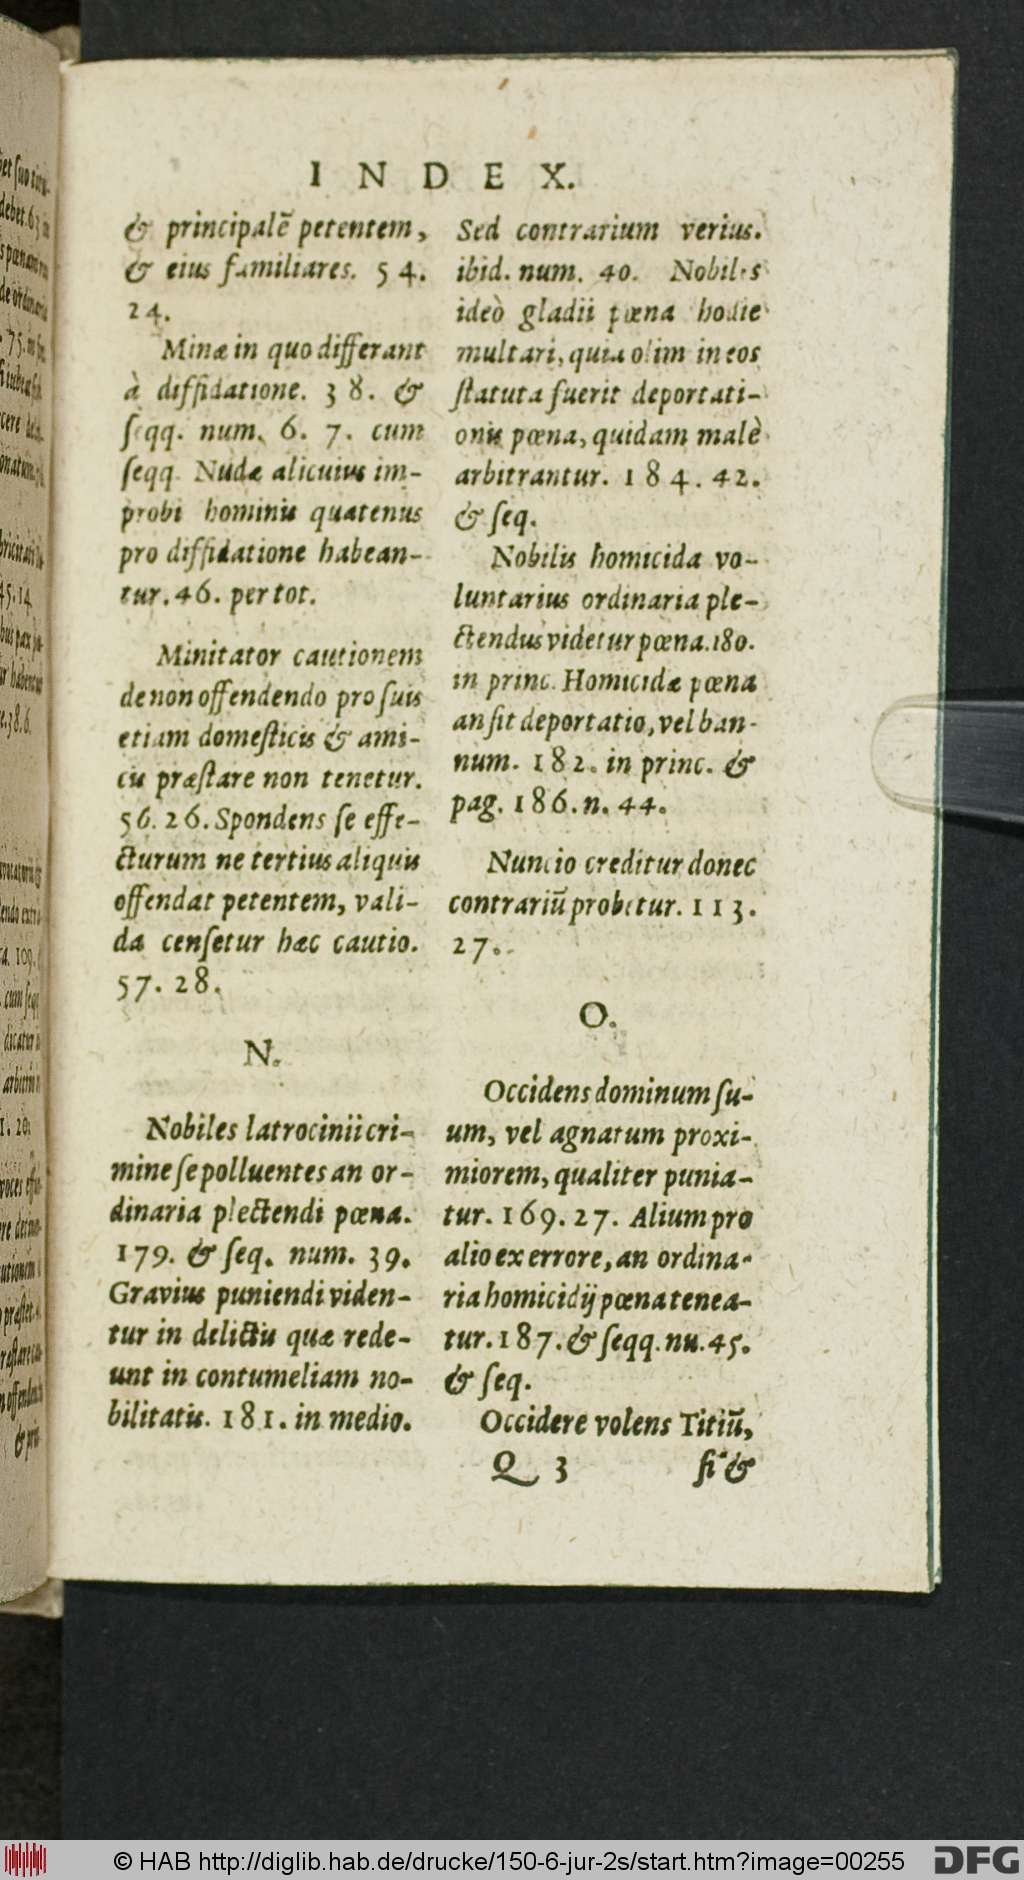 INDEX.
& principalẽ petentem,
& eius familiares. 54.
24.
Minæ in quo differant
à diffidatione. 38. &
seqq. num. 6. 7. cum
seqq. Nudæ alicuius im-
probi hominis quatenus
pro diffidatione habean-
tur. 46. per tot.
Minitator cautionem
de non offendendo pro suis
etiam domesticis & ami-
cis præstare non tenetur.
56. 26. Spondens se effe-
cturum ne tertius aliquis
offendat petentem, vali-
da censetur hæc cautio.
57. 28.
N.
Nobiles latrocinii cri-
mine se polluentes an or-
dinaria plectendi pœna.
179. & seq. num. 39.
Gravius puniendi viden-
tur in delictis quæ rede-
unt in contumeliam no-
bilitatis. 181. in medio.
Sed contrarium verius.
ibid. num. 40. Nobiles
ideò gladii pœna hodie
multari, quia olim in eos
statuta fuerit deportati-
onis pœna, quidam malè
arbitrantur. 184. 42.
& seq.
Nobilis homicida vo-
luntarius ordinaria ple-
ctendus videtur pœna. 180.
in princ. Homicidæ pœna
an sit deportatio, vel ban-
num. 182. in princ. &
pag. 186. n. 44.
Nuncio creditur donec
contrariũ probetur. 113.
27.
O.
Occidens dominum su-
um, vel agnatum proxi-
miorem, qualiter punia-
tur. 169. 27. Alium pro
alio ex errore, an ordina-
ria homicidij pœna tenea-
tur. 187. & seqq. nu. 45.
& seq.
Occidere volens Titiũ,
Q 3 si &
© HAB http://diglib.hab.de/drucke/150-6-jur-2s/start.htm?image=00255
DFG